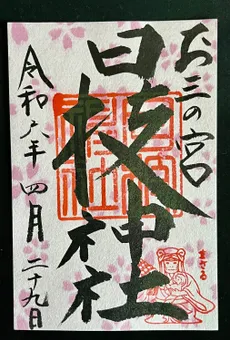 お三の宮
日枝神社
令和六年 四月 二十九日